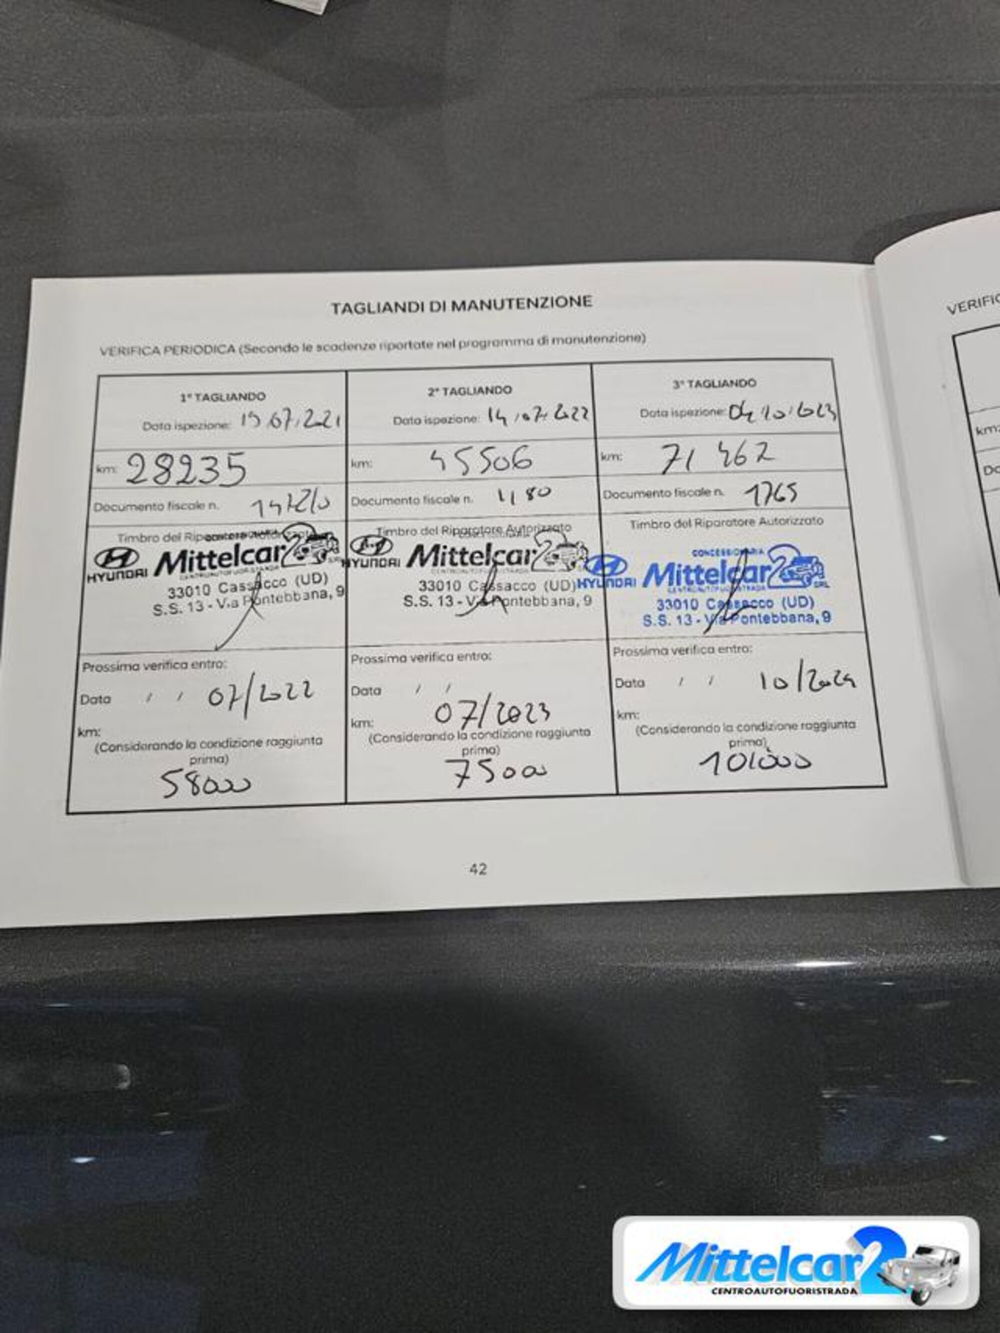 TAGLIANDI DI MANUTENZIONE
VERIFICA PERIODICA (Secondo le scadenze riportate nel programma di manutenzione)
1° TAGLIANDO
Data ispezione: 19/07/2021
km: 28235
Documento fiscale n.
Timbro del Riparatore Autorizzato
HYUNDAI Mittelcar 2 SRL
CENTROAUTOFUORISTRADA
33010 Cassacco (UD)
S.S. 13 - Via Pontebbana, 9
Prossima verifica entro:
Data / / 07/2022
km:
(Considerando la condizione raggiunta
prima)
58000
2° TAGLIANDO
Data ispezione: 14/07/2022
km: 45506
Documento fiscale n. 1180
Timbro del Riparatore Autorizzato
HYUNDAI Mittelcar 2
CENTROAUTOFUORISTRADA
33010 Cassacco (UD)
S.S. 13 - Via Pontebbana, 9
Prossima verifica entro:
Data / /
07/2023
km:
(Considerando la condizione raggiunta
prima)
75000
3° TAGLIANDO
Data ispezione: 04/10/2023
km: 71462
Documento fiscale n. 1765
Timbro del Riparatore Autorizzato
CONCESSIONARIA
HYUNDAI Mittelcar 2 SRL
CENTROAUTOFUORISTRADA
33010 Cassacco (UD)
S.S. 13 - Via Pontebbana, 9
Prossima verifica entro:
Data / / 10/2024
km:
(Considerando la condizione raggiunta
prima)
101000
42
VERIFIC
km:
Do
Mittelcar 2
CENTROAUTOFUORISTRADA